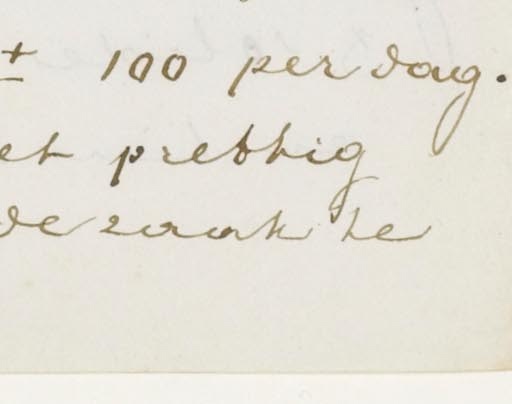 ± 100 per dag.
et prettig
de zaak te